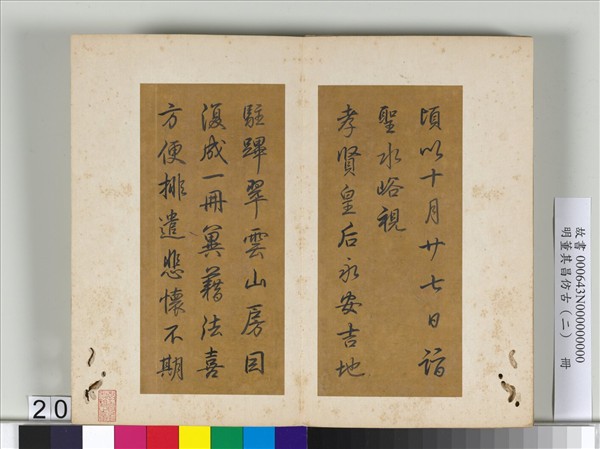 頃以十月廿七日詣
聖水峪視
孝賢皇后永安吉地
駐蹕翠雲山房因
復成一冊冀藉法喜
方便排遣悲懷不期
故書 000643N000000000
明董其昌仿古（二） 冊
20